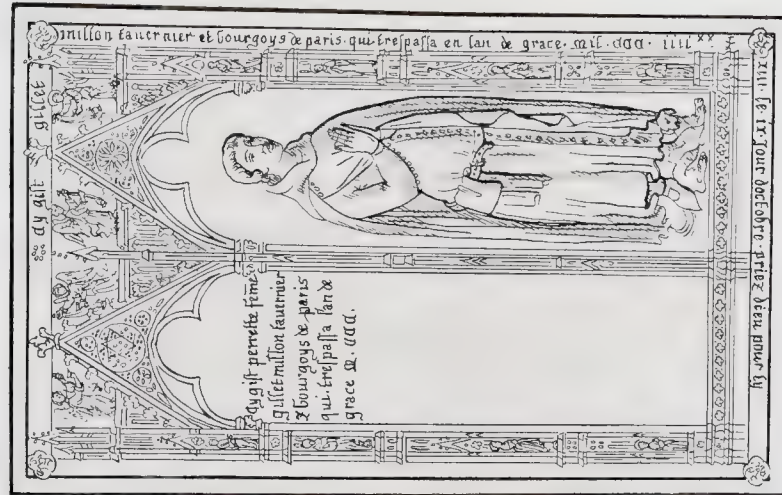 cy gist gillet
millon tauernier et bourgoys de paris. qui. treſpaſſa en lan de grace. mil. ccc. iiii xx
le ix jour doctobre. priez dieu pour ly
cy gist perrette feme
gillet millon tauernier
& bourgoys de paris
qui. treſpaſſa lan de
grace m. ccc.